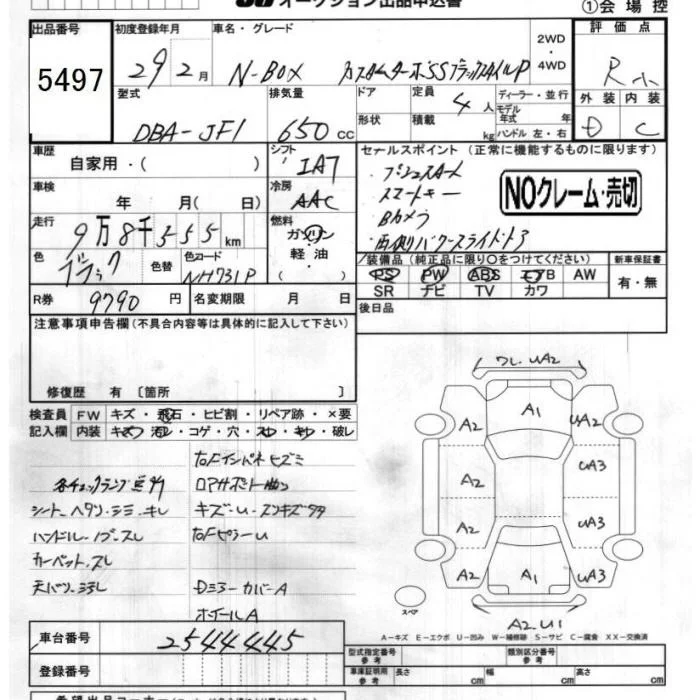 オークション出品申込書
①会場控
出品番号 初度登録年月 車名・グレード 2WD ・ 4WD 評価点
5497 29 2月 N-BOX カスタムターボSSブラックスタイルP R
型式 排気量 ドア 定員 ディーラー・並行 外装 内装
DBA-JF1 650 cc 形状 積載 4人 モデル年式 年 D C
kg ハンドル 左・右
車歴 自家用・( ) シフト IA7 セールスポイント (正常に機能するものに限ります)
車検 年 月( 日) 冷房 AAC ・プッシュスタート
・スマートキー NOクレーム・売切
走行 9万8千555km 燃料 ガソリン 軽油 ・( ) ・Bカメラ
・両側パワースライドドア
色 ブラック 色替 色コード NH731P 装備品 (純正品に限り○をつけてください) 新車保証書
PS PW ABS エアB AW 有・無
SR ナビ TV カワ
R券 9790円 名変期限 月 日 後日品
注意事項申告欄(不具合内容等は具体的に記入して下さい)
修復歴 有 〔箇所 〕
検査員 FW キズ・飛石・ヒビ割・リペア跡・×要
記入欄 内装 キズ・汚レ・コゲ・穴・スレ・キレ・破レ
右Fインパネヒズミ
各チェックランプ点灯
ロアサポート曲り
シート、ヘタリ・シミ・キレ キズ・U・スリキズ多
ハンドル・ノブ・スレ 右FピラーU
カーペット、スレ
天バリ、汚レ Dミラーカバー A
ホイールA
ワレ・UA2
A2 A1 UA2
A2 UA3
A2 UA3
A2 A1 UA3
スペア
A2・U1
A-キズ E-エクボ U-凹み W-補修跡 S-サビ C-腐食 XX-交換済
車台番号 2544445
登録番号
型式指定番号 参考 類別区分番号 参考
車庫証明用 参考 長さ cm 幅 cm 高さ cm